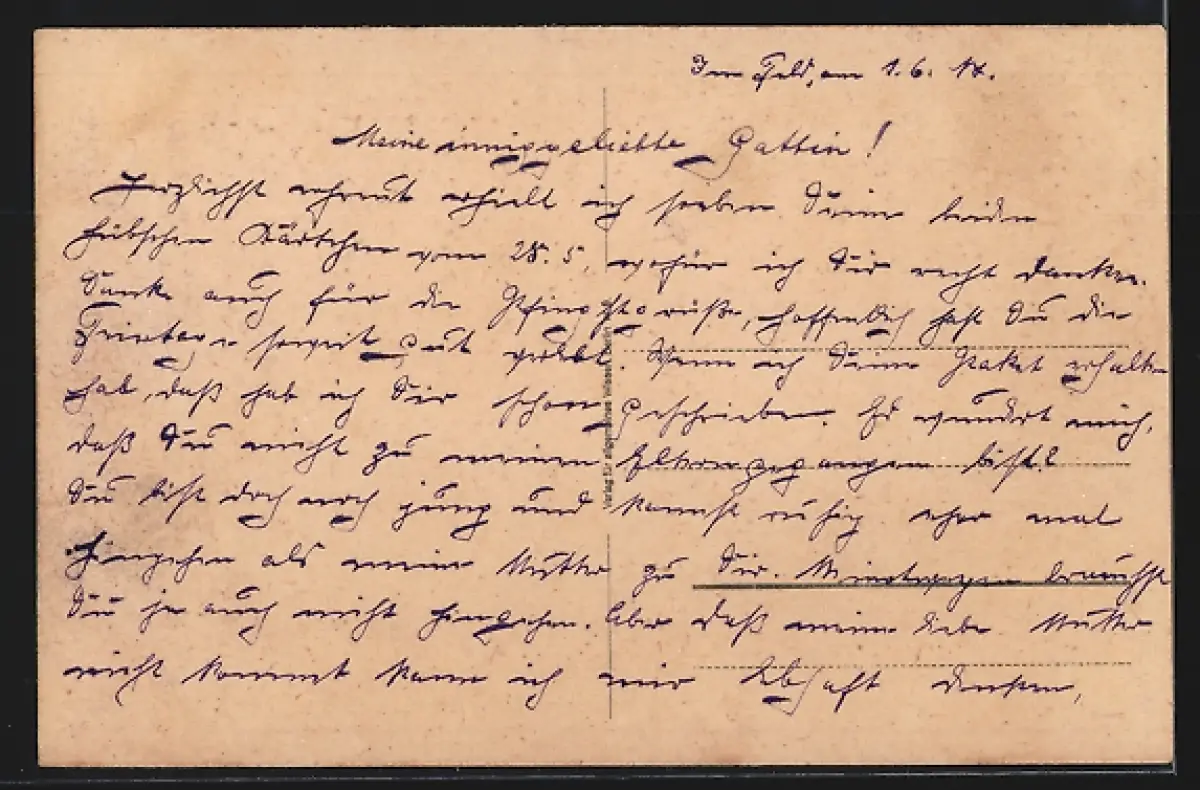 Im Feld, am 1.6.17.
Meine inniggeliebte Gattin!
Herzlichst erfreut erhielt ich soeben Deine beiden
hübschen Kärtchen vom 28.5, wofür ich Dir recht danke.
Danke auch für die Pfingstgrüße, hoffentlich hast Du die
Feiertage soweit gut verlebt. Wenn ich Deine Paket erhalten
hab, daß hab ich Dir schon geschrieben. Es wundert mich,
daß Du nicht zu meinen Eltern gegangen bist.
Du bist doch noch jung und kannst ruhig eher mal
hingehen als meine Mutter zu Dir. Meinetwegen brauchst
Du ja auch nicht hingehen. Aber daß meine liebe Mutter
nicht kommt kann ich mir lebhaft denken,
Verlag für